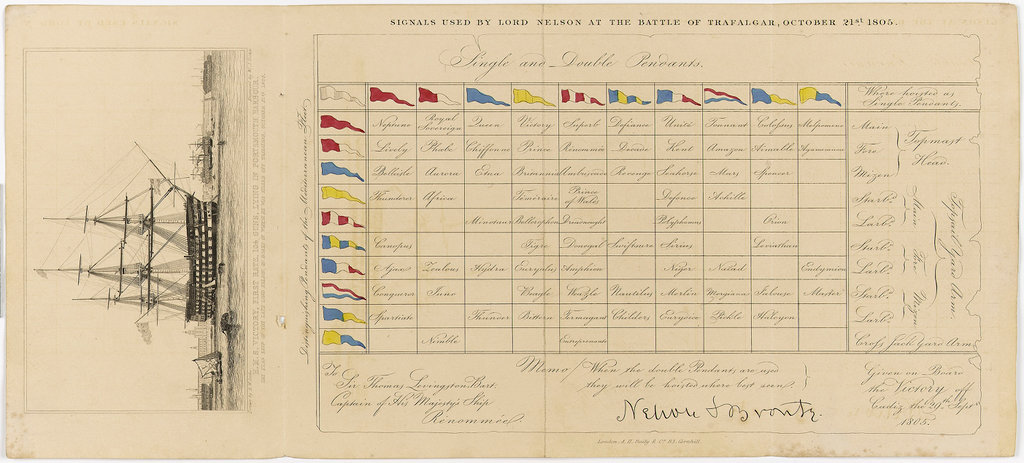 SIGNALS USED BY LORD NELSON AT THE BATTLE OF TRAFALGAR, OCTOBER 21st 1805.
Single and Double Pendants.
Where hoisted as Single Pendants.
Distinguishing Pendants of the Mediterranean Fleet
Neptune Royal Sovereign Queen Victory Superb Defiance Unité Tonnant Colossus Melpomene
Lively Phœbe Chiffonne Prince Renommée Dreade Kent Amazon Aimable Agamemnon
Belleisle Aurora Etna Britannia Ambuscade Revenge Seahorse Mars Spencer
Thunderer Africa Téméraire Prince of Wales Defence Achille
Minotaur Bellerophon Dreadnought Polyphemus Orion
Canopus Tigre Donegal Swiftsure Sirius Leviathan
Ajax Zealous Hydra Euryalus Amphion Niger Naiad Endymion
Conqueror Juno Beagle Weazle Nautilus Merlin Morgiana Jalouse Master
Spartiate Thunder Bittern Termagant Childers Eurydice Pickle Halcyon
Nimble Entreprenante
Main
Fore
Mizen
Topmast Head.
Starbd.
Larbd.
Starbd.
Larbd.
Starbd.
Larbd.
Main Fore Mizen
Topsail Yard Arm.
Cross Jack Yard Arm
Memo/ Where the double Pendants are used
they will be hoisted where best seen.
To
Sir Thomas Livingston Bart.
Captain of His Majesty's Ship
Renommée.
Nelson & Bronte.
Given on Board
the Victory off
Cadiz the 29th Septr.
1805.
London, A. H. Baily & Co. 83, Cornhill.